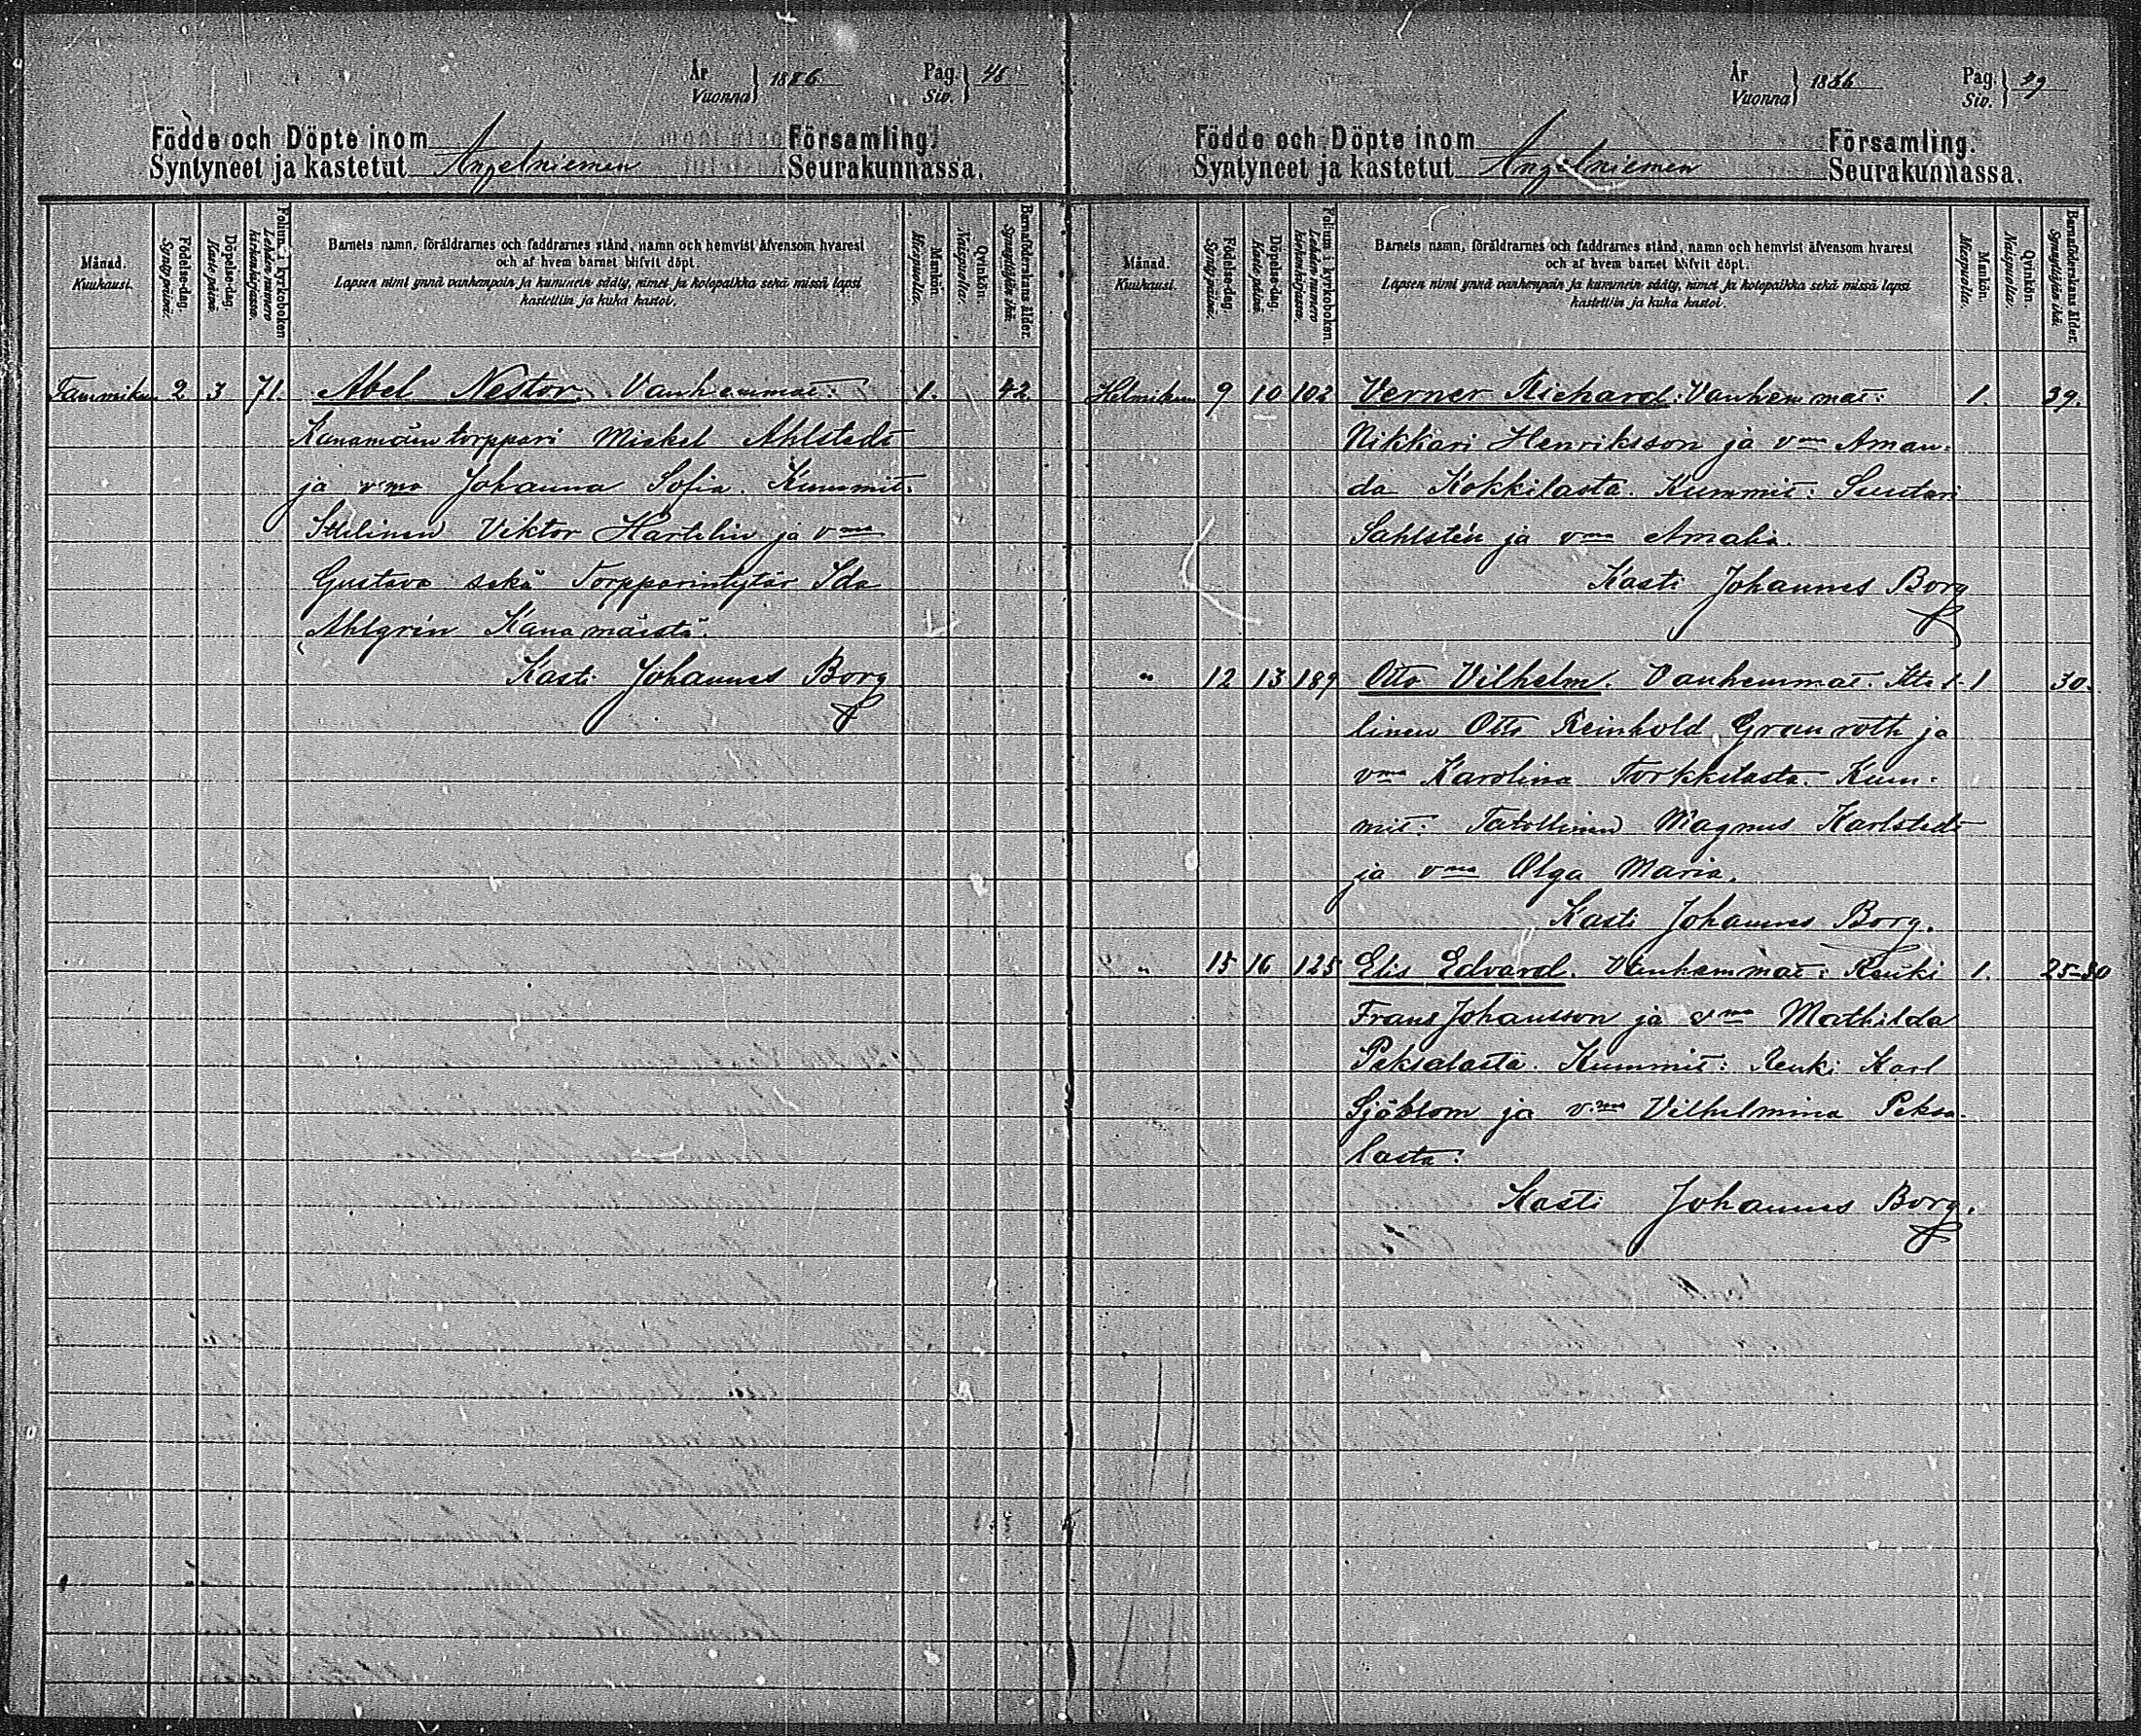 År
Vuonna } 1886
Pag.
Siv. } 48
Födde och Döpte inom
Syntyneet ja kastetut Angelniemen
Församling.
Seurakunnassa.
Månad.
Kuukausi.
Födelse-dag.
Syntypäivä.
Döpelse-dag.
Kaste päivä.
Folium i kyrkoboken
Lehden numero
kirkonkirjassa.
Barnets namn, föräldrarnes och faddrarnes stånd, namn och hemvist äfvensom hvarest
och af hvem barnet blifvit döpt.
Lapsen nimi ynnä vanhempain ja kummein sääty, nimet ja kotopaikka sekä missä lapsi
kastettiin ja kuka kastoi.
Mankön.
Miespuolta.
Qvinkön.
Naispuolta.
Barnaföderskans ålder.
Synnyttäjän ikä.
Tammikuu 2 3 71 Abel Nestor. Vanhemmat: 1. 42
Kanamäen torppari Mickel Ahlstedt
ja vmo Johanna Sofia. Kummit:
Ittelinen Viktor Hartelin ja vmo
Gustava sekä Torpparintytär Ida
Ahlgrén Kanamäistä.
Kasti Johannes Borg
År
Vuonna } 1886
Pag.
Siv. } 49
Födde och Döpte inom
Syntyneet ja kastetut Angelniemen
Församling.
Seurakunnassa.
Månad.
Kuukausi.
Födelse-dag.
Syntypäivä.
Döpelse-dag.
Kaste päivä.
Folium i kyrkoboken.
Lehden numero
kirkonkirjassa.
Barnets namn, föräldrarnes och faddrarnes stånd, namn och hemvist äfvensom hvarest
och af hvem barnet blifvit döpt.
Lapsen nimi ynnä vanhempain ja kummein sääty, nimet ja kotopaikka sekä missä lapsi
kastettiin ja kuka kastoi.
Mankön.
Miespuolta.
Qvinkön.
Naispuolta.
Barnaföderskans ålder.
Synnyttäjän ikä.
Helmikuu 9 10 102 Verner Richard: Vanhemmat: 1. 39.
Nikkari Henriksson ja vmo Aman-
da Kokkilasta. Kummit: Suutari
Sahlstén ja vmo Amalia.
Kasti Johannes Borg
" 12 13 189 Otto Vilhelm. Vanhemmat: Itte l- 1 30.
linen Otto Reinhold Granroth ja
vmo Karolina Torkkilasta. Kum-
mit: Magnus Karlstedt
ja vmo Olga Maria.
Kasti Johannes Borg.
" 15 16 125 Elis Edvard. Vanhemmat: Renki 1. 25-30
Frans Johansson ja vmo Mathilda
Peksalasta. Kummit: Renki Karl
Sjöblom ja vmo Vilhelmina Peksa-
lasta.
Kasti Johannes Borg.